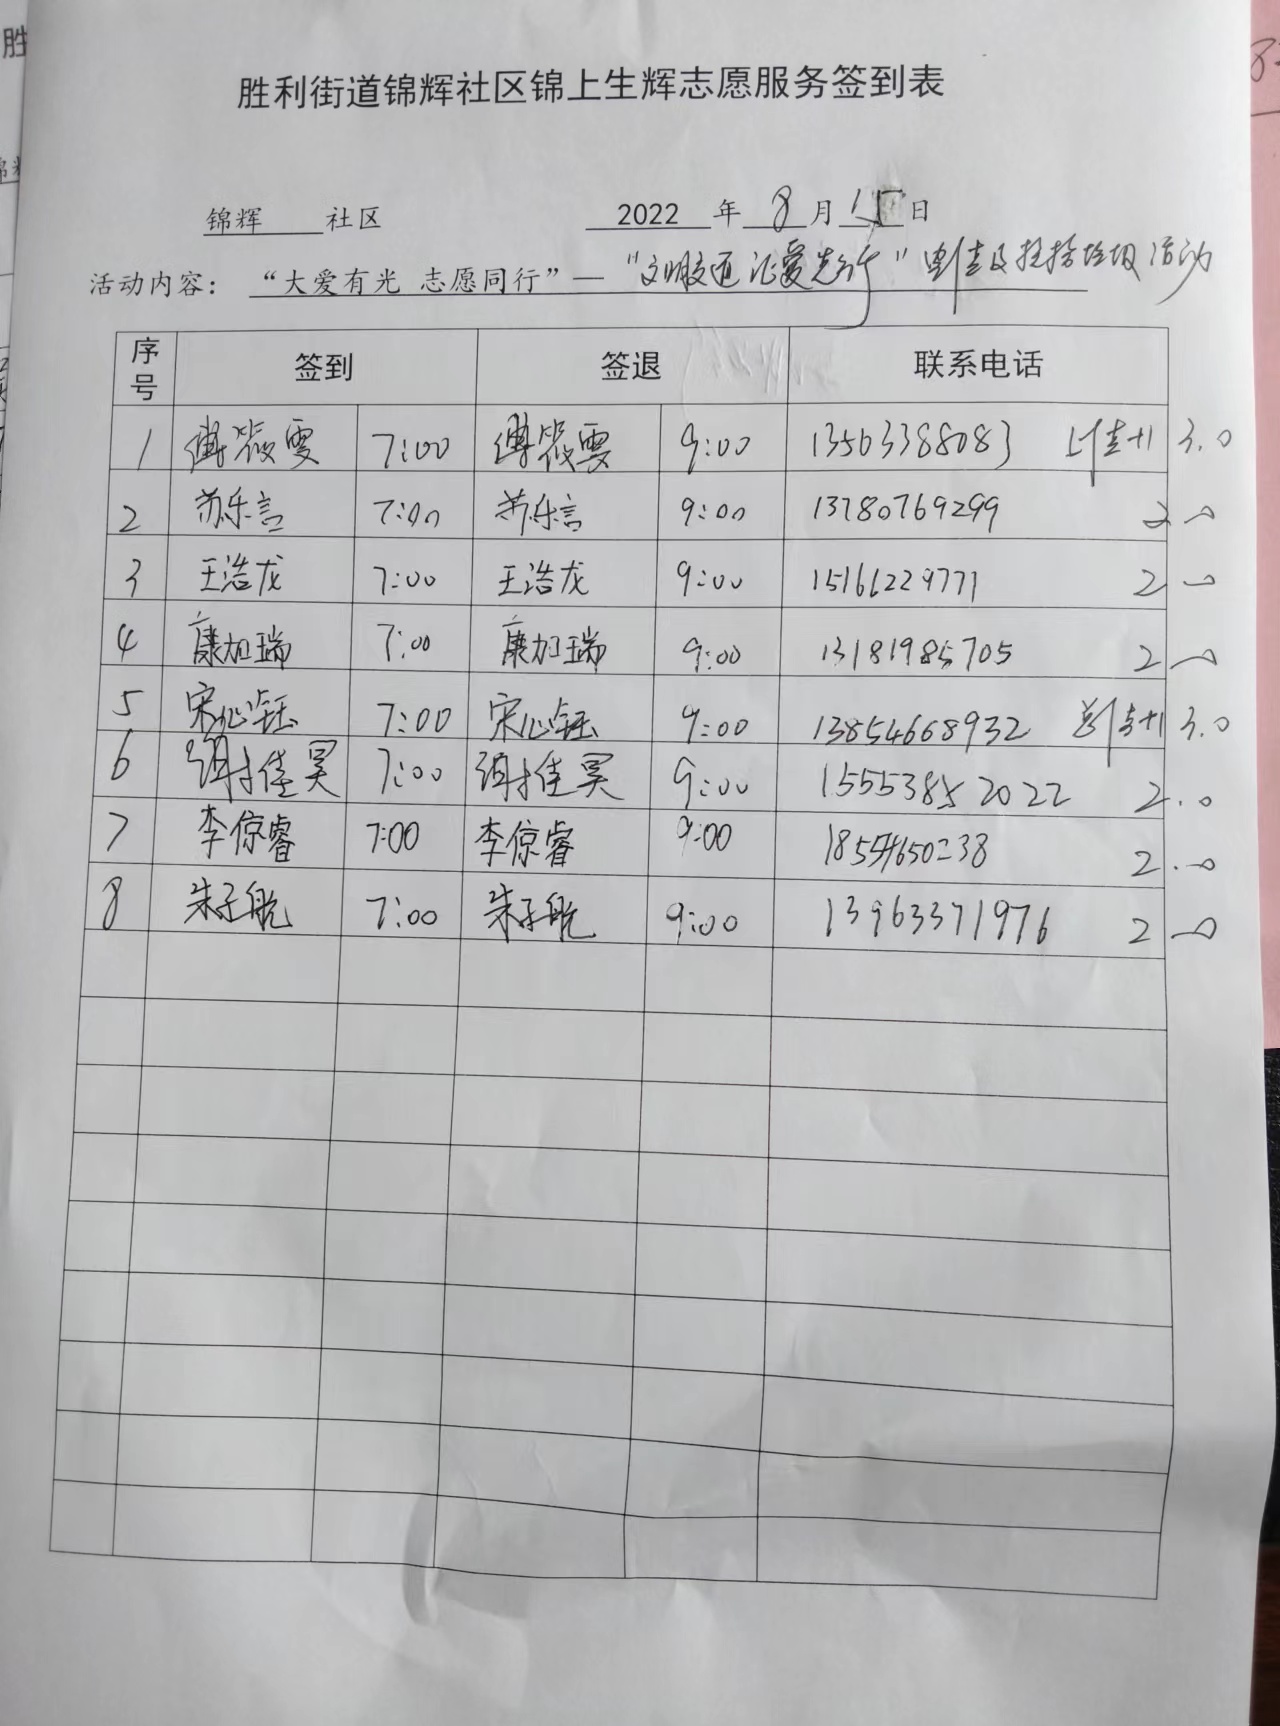 胜利街道锦辉社区锦上生辉志愿服务签到表
锦辉 社区 2022 年 8 月 15 日
活动内容：“大爱有光 志愿同行”—“文明交通 让爱先行” 及捡拾垃圾活动
序号 签到 签退 联系电话
1 傅筱雯 7:00 傅筱雯 9:00 13563388083 +1 3.0
2 苏乐言 7:00 苏乐言 9:00 13780769299 2.0
3 王浩龙 7:00 王浩龙 9:00 15166229771 2.0
4 康加瑞 7:00 康加瑞 9:00 13181985705 2.0
5 宋心钰 7:00 宋心钰 9:00 13854668932 +1 3.0
6 谢佳昊 7:00 谢佳昊 9:00 15553852022 2.0
7 李倞睿 7:00 李倞睿 9:00 2.0
8 朱子航 7:00 朱子航 9:00 13963371976 2.0